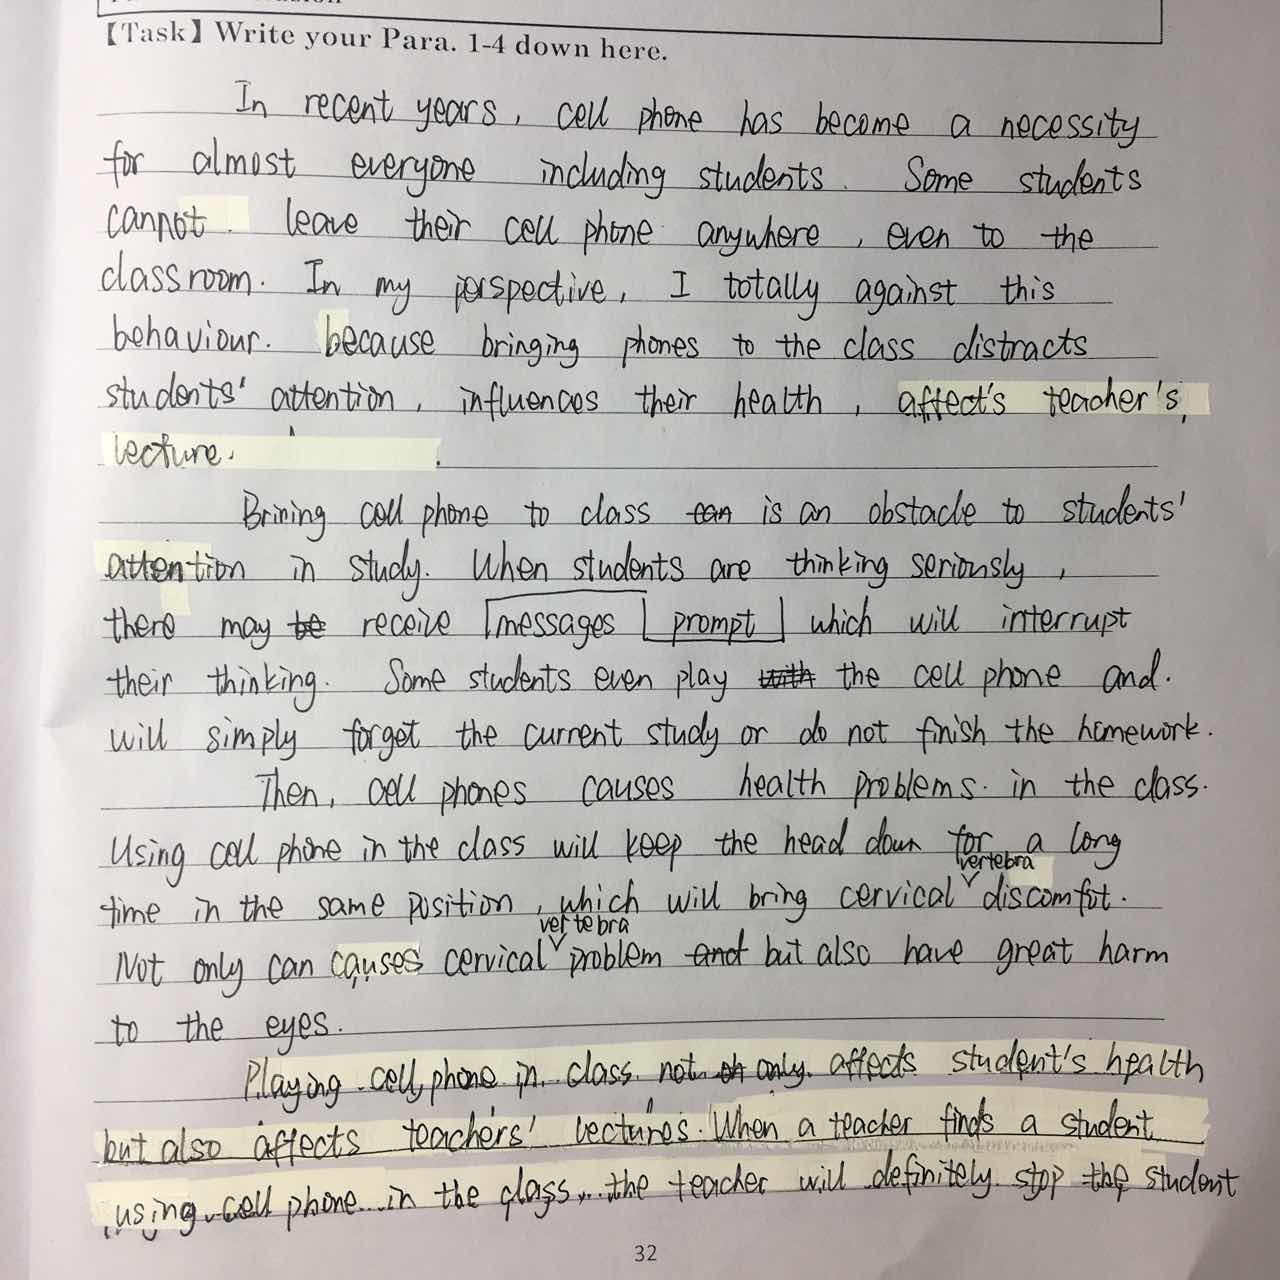 【Task】Write your Para. 1-4 down here.
In recent years, cell phone has become a necessity
for almost everyone including students. Some students
cannot leave their cell phone anywhere, even to the
classroom. In my perspective, I totally against this
behaviour. because bringing phones to the class distracts
students' attention, influences their health, affect's teacher's
lecture.
Brining cell phone to class can is an obstacle to students'
attention in study. When students are thinking seriously,
there may be receive messages prompt which will interrupt
their thinking. Some students even play with the cell phone and.
will simply forget the current study or do not finish the homework.
Then, cell phones causes health problems. in the class.
Using cell phone in the class will keep the head down for a long
time in the same position, which will bring cervical vertebra discomfot.
Not only can causes cervical vertebra problem and but also have great harm
to the eyes.
Playing cell phone in class not only affects student's health
but also affects teachers' lectures. When a teacher finds a student
using cell phone in the class, the teacher will definitely stop the student
32